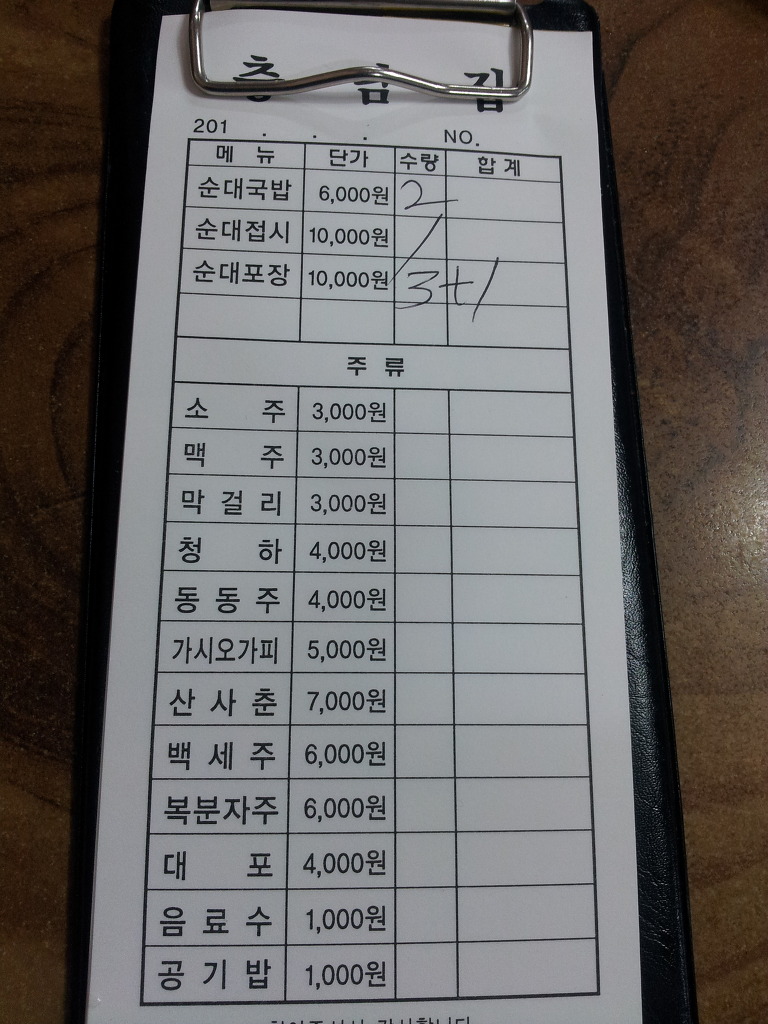 201 . . . NO.
메 뉴 단가 수량 합 계
순대국밥 6,000원 2
순대접시 10,000원 /
순대포장 10,000원 3+1
주 류
소 주 3,000원
맥 주 3,000원
막 걸 리 3,000원
청 하 4,000원
동 동 주 4,000원
가시오가피 5,000원
산 사 춘 7,000원
백 세 주 6,000원
복분자주 6,000원
대 포 4,000원
음 료 수 1,000원
공 기 밥 1,000원